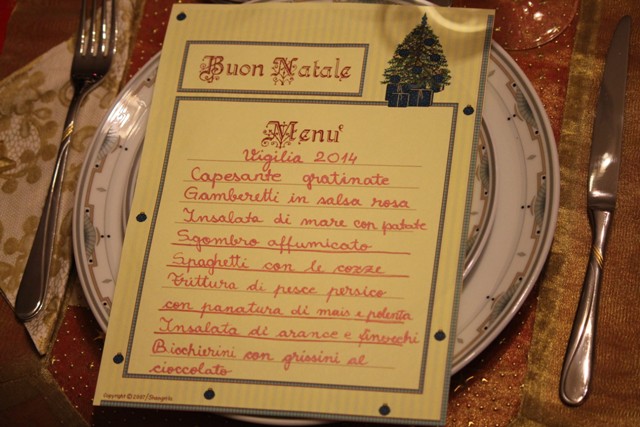 Buon Natale
Menu'
Vigilia 2014
Capesante gratinate
Gamberetti in salsa rosa
Insalata di mare con patate
Sgombro affumicato
Spaghetti con le cozze
Frittura di pesce persico
con panatura di mais e polenta
Insalata di arance e finocchi
Bicchierini con grissini al
cioccolato
Copyright © 2007 / Shangrila